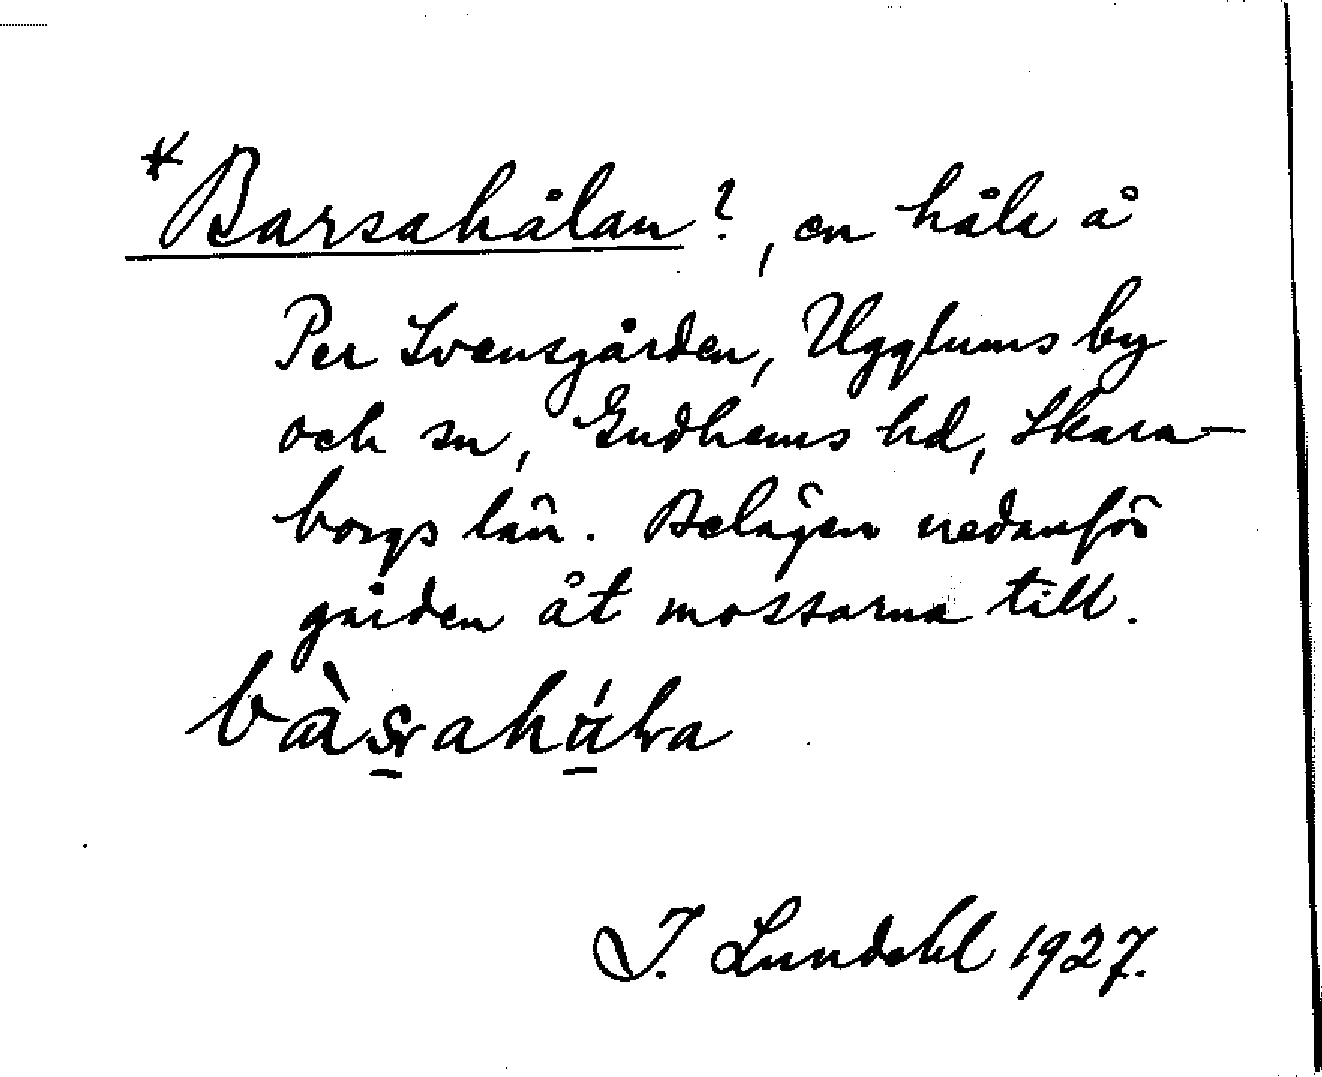 *Barsahålan?, en håla å
Per Svensgården, Ugglums by
och sn, Gudhems hd, Skara-
borgs län. Belägen nedanför
gården åt mossarna till.
I. Lundahl 1927.